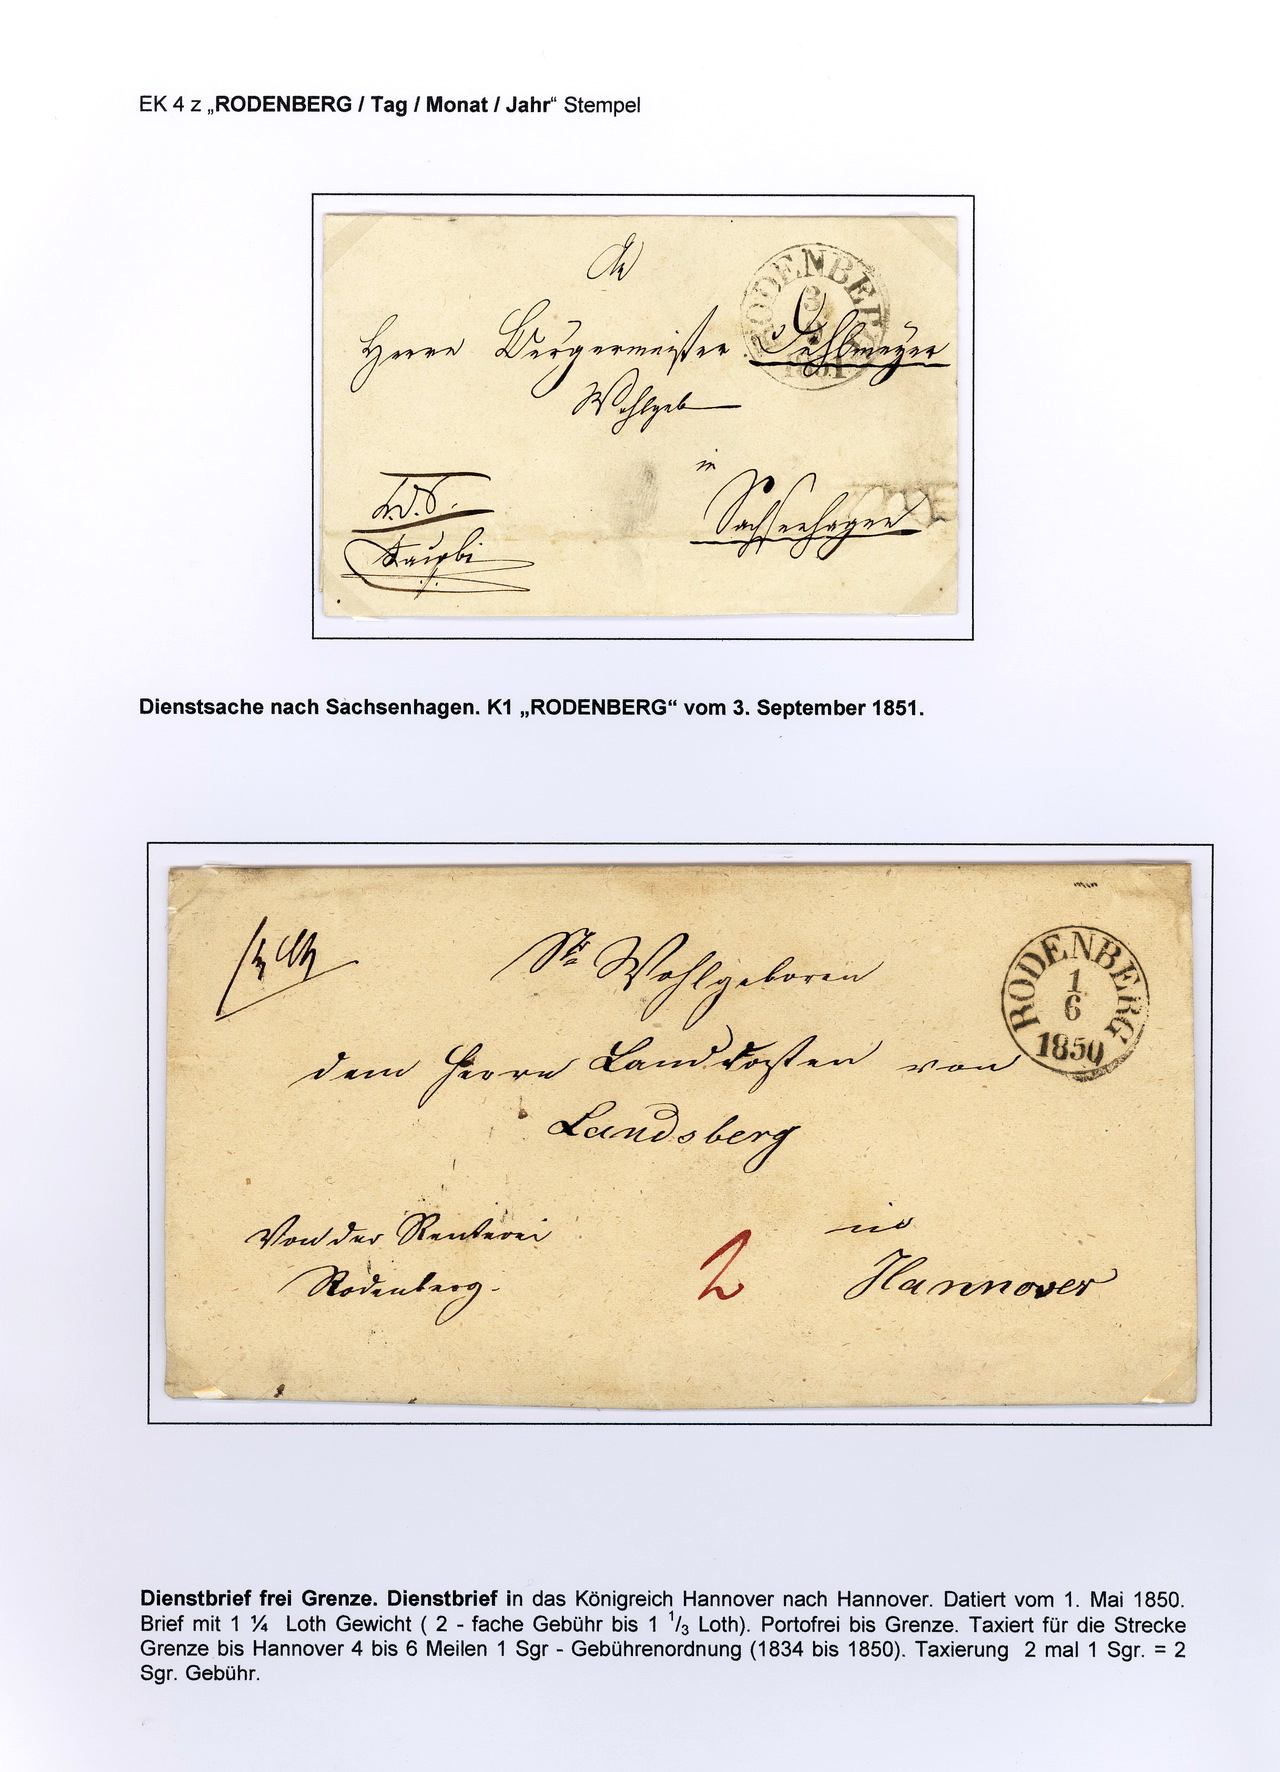 EK 4 z „RODENBERG / Tag / Monat / Jahr“ Stempel
An
RODENBERG
3
1851
Herrn Bürgermeister Oehlmeyer
Wohlgeb
in
Sachsenhagen
K.D.S.
Dienstsache nach Sachsenhagen. K1 „RODENBERG“ vom 3. September 1851.
RODENBERG
1
6
1850
Sr Wohlgeboren
dem Herrn Landdrosten von
Landsberg
Von der Renterei
Rodenberg.
2
in
Hannover
Dienstbrief frei Grenze. Dienstbrief in das Königreich Hannover nach Hannover. Datiert vom 1. Mai 1850.
Brief mit 1 ¼ Loth Gewicht ( 2 - fache Gebühr bis 1 1/3 Loth). Portofrei bis Grenze. Taxiert für die Strecke
Grenze bis Hannover 4 bis 6 Meilen 1 Sgr - Gebührenordnung (1834 bis 1850). Taxierung 2 mal 1 Sgr. = 2
Sgr. Gebühr.